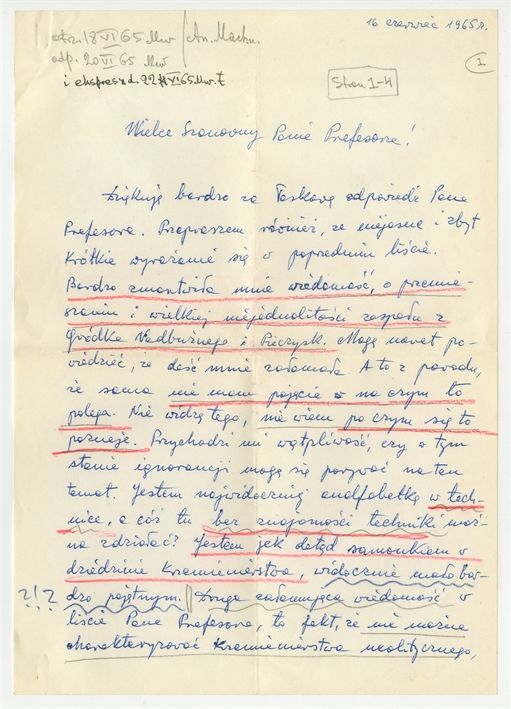 otrz. 18 VI 65 Mw
odp. 20 VI 65 Mw
i ekspres d. 22 VI 65 Mw.
16 czerwiec 1965 r.
1
Stron 1-4
Wielce Szanowny Panie Profesorze!
Dziękuję bardzo za łaskawą odpowiedź Pana
Profesora. Przepraszam również, za niejasne i zbyt
krótkie wyrażanie się w poprzednim liście.
Bardzo zmartwiła mnie wiadomość, o przemie-
szaniu i wielkiej niejednolitości zespołu z
Gródka Nadbużnego i Pieczysk. Mogę nawet po-
wiedzieć, że dość mnie załamała. A to z powodu,
że sama nie mam pojęcia na czym to
polega. Nie widzę tego, nie wiem po czym się to
poznaje. Przychodzi mi wątpliwość, czy o tym
stanie ignorancji mogę się porywać na ten
temat. Jestem najwidoczniej analfabetką w tech-
nice, a cóś tu bez znajomości techniki moż-
na zdziałać? Jestem jak dotąd samoukiem w
dziedzinie krzemieniarstwa, widocznie mało bar-
?!? dzo pojętnym. || Druga załamująca wiadomość w
liście Pana Profesora, to fakt, że nie można
charakteryzować krzemieniarstwa neolitycznego,